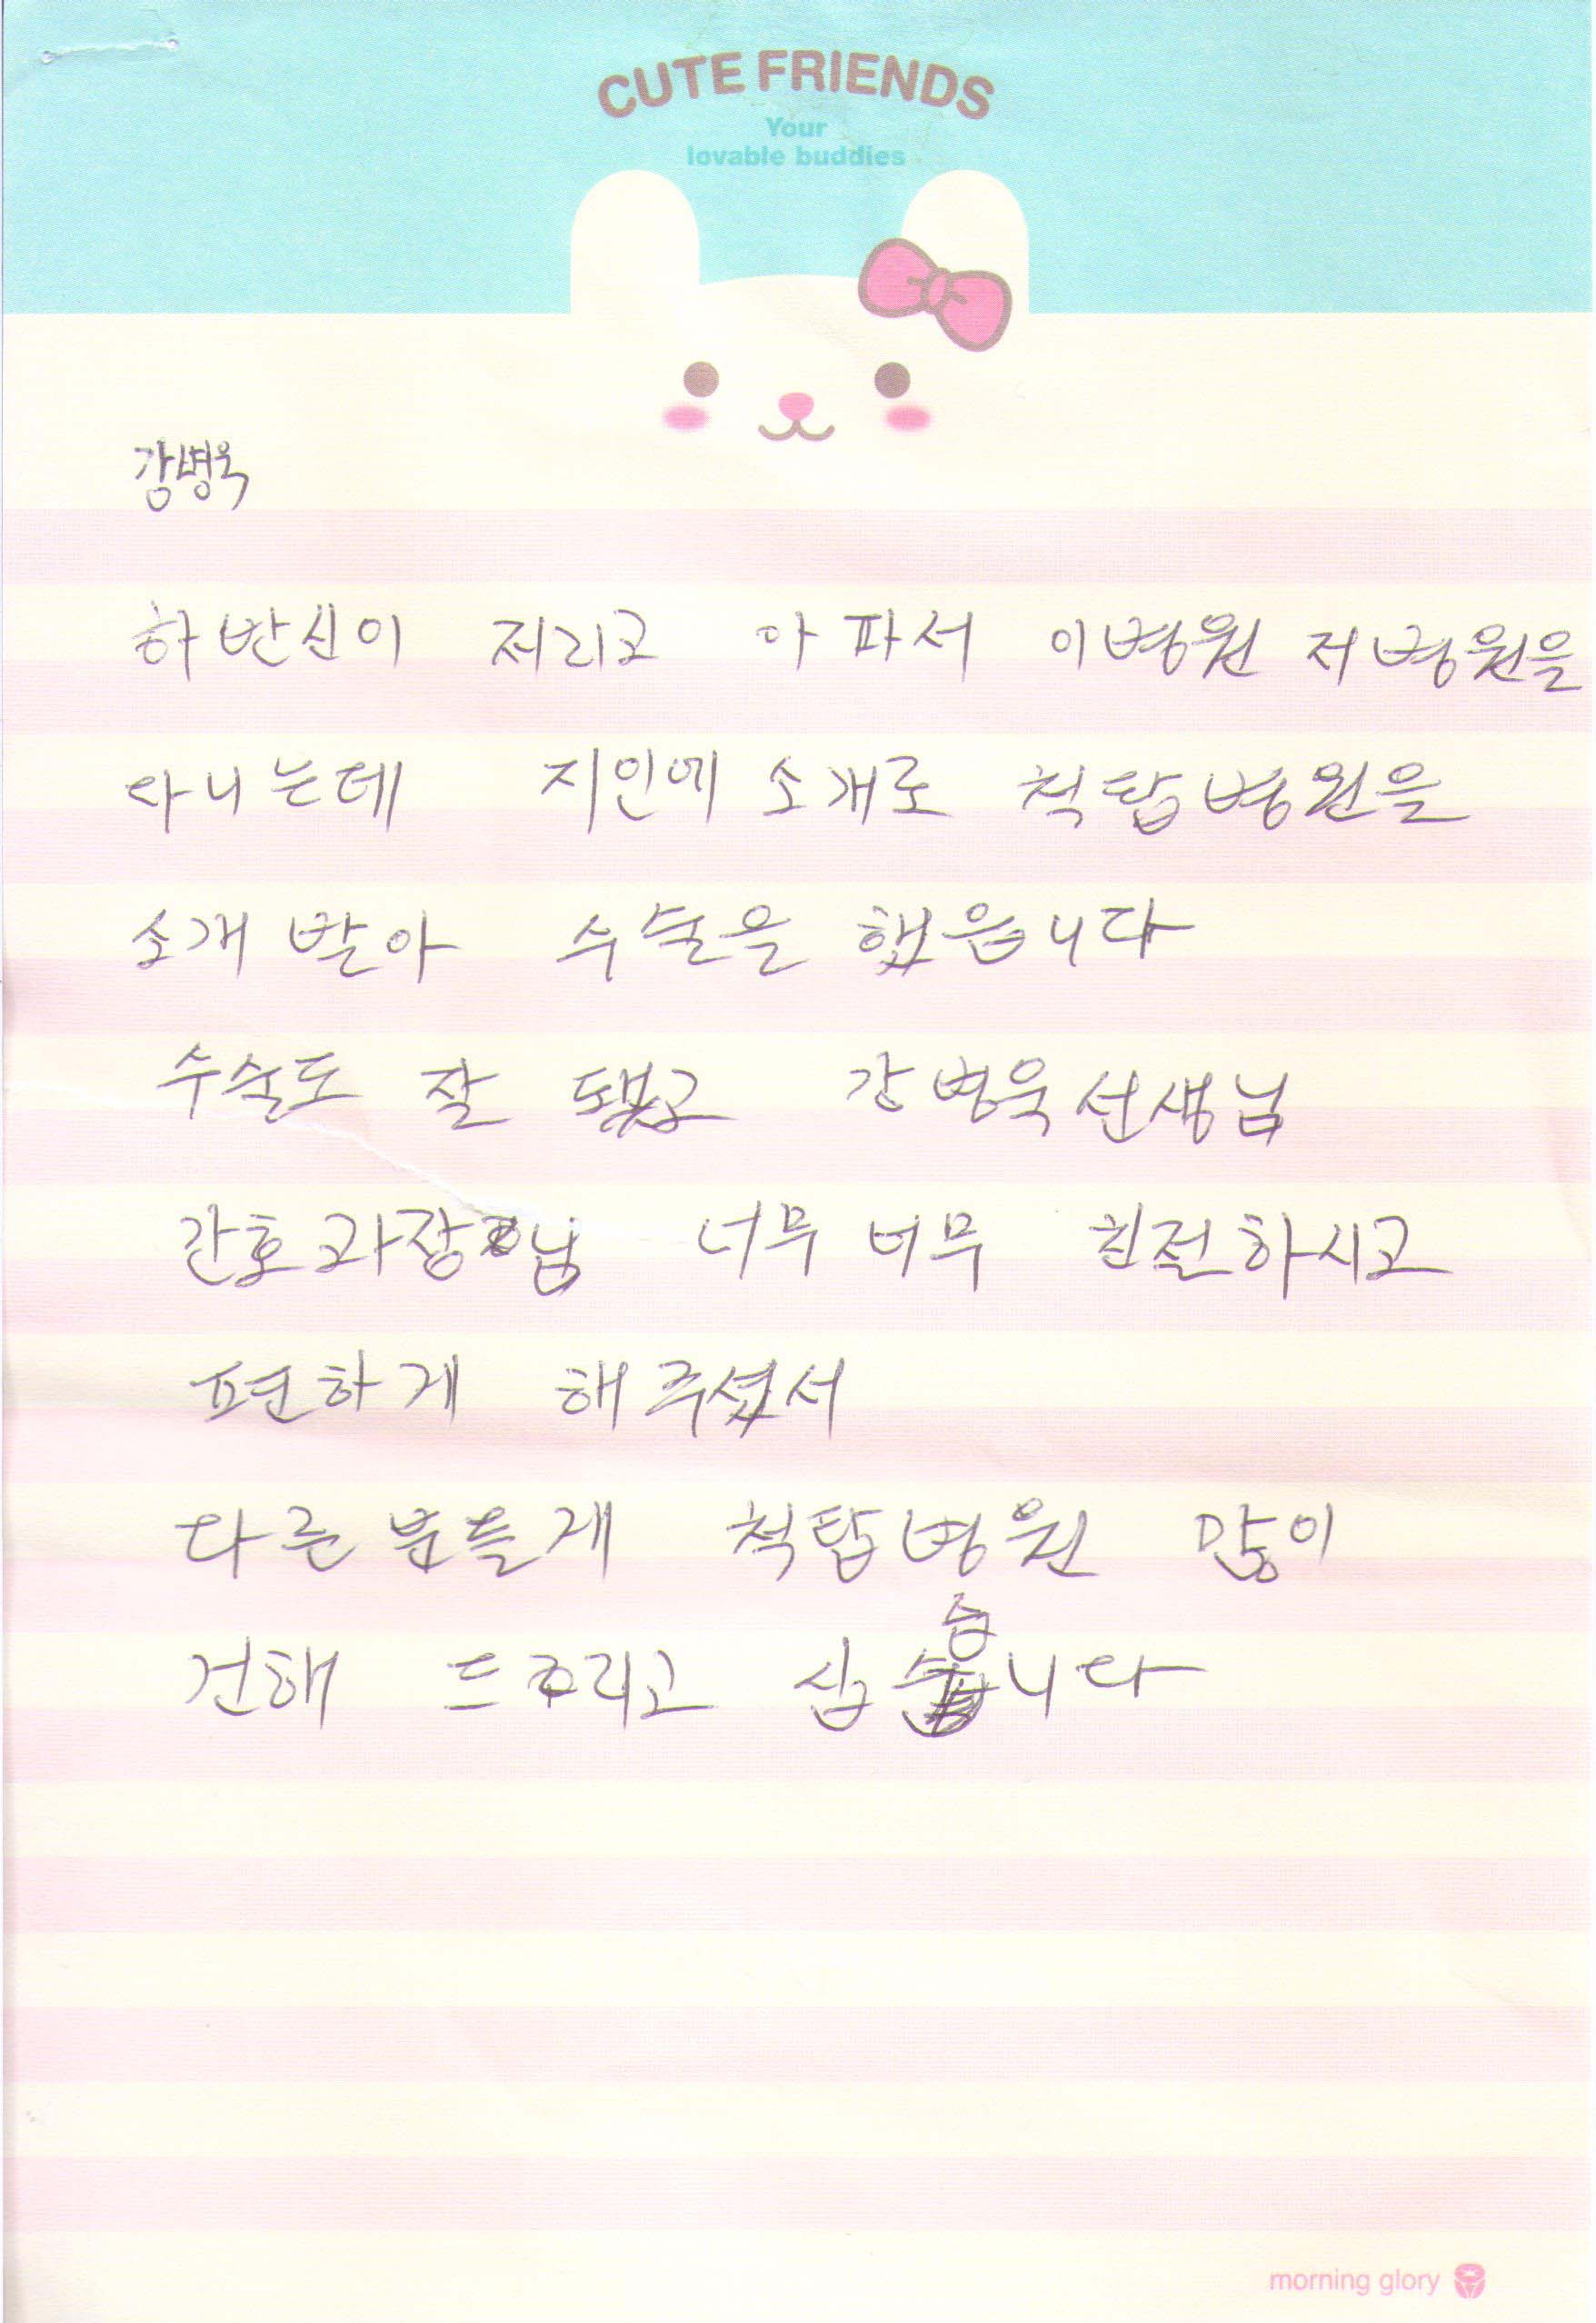 CUTE FRIENDS
Your
lovable buddies
강병욱
하반신이 저리고 아파서 이병원 저병원을
다니는데 지인에 소개로 척탑병원을
소개 받아 수술을 했읍니다
수술도 잘 됐고 강병욱선생님
간호과장님 너무 너무 친절하시고
편하게 해주셨서
다른분들게 척탑병원 많이
건해 드리고 십습니다
morning glory